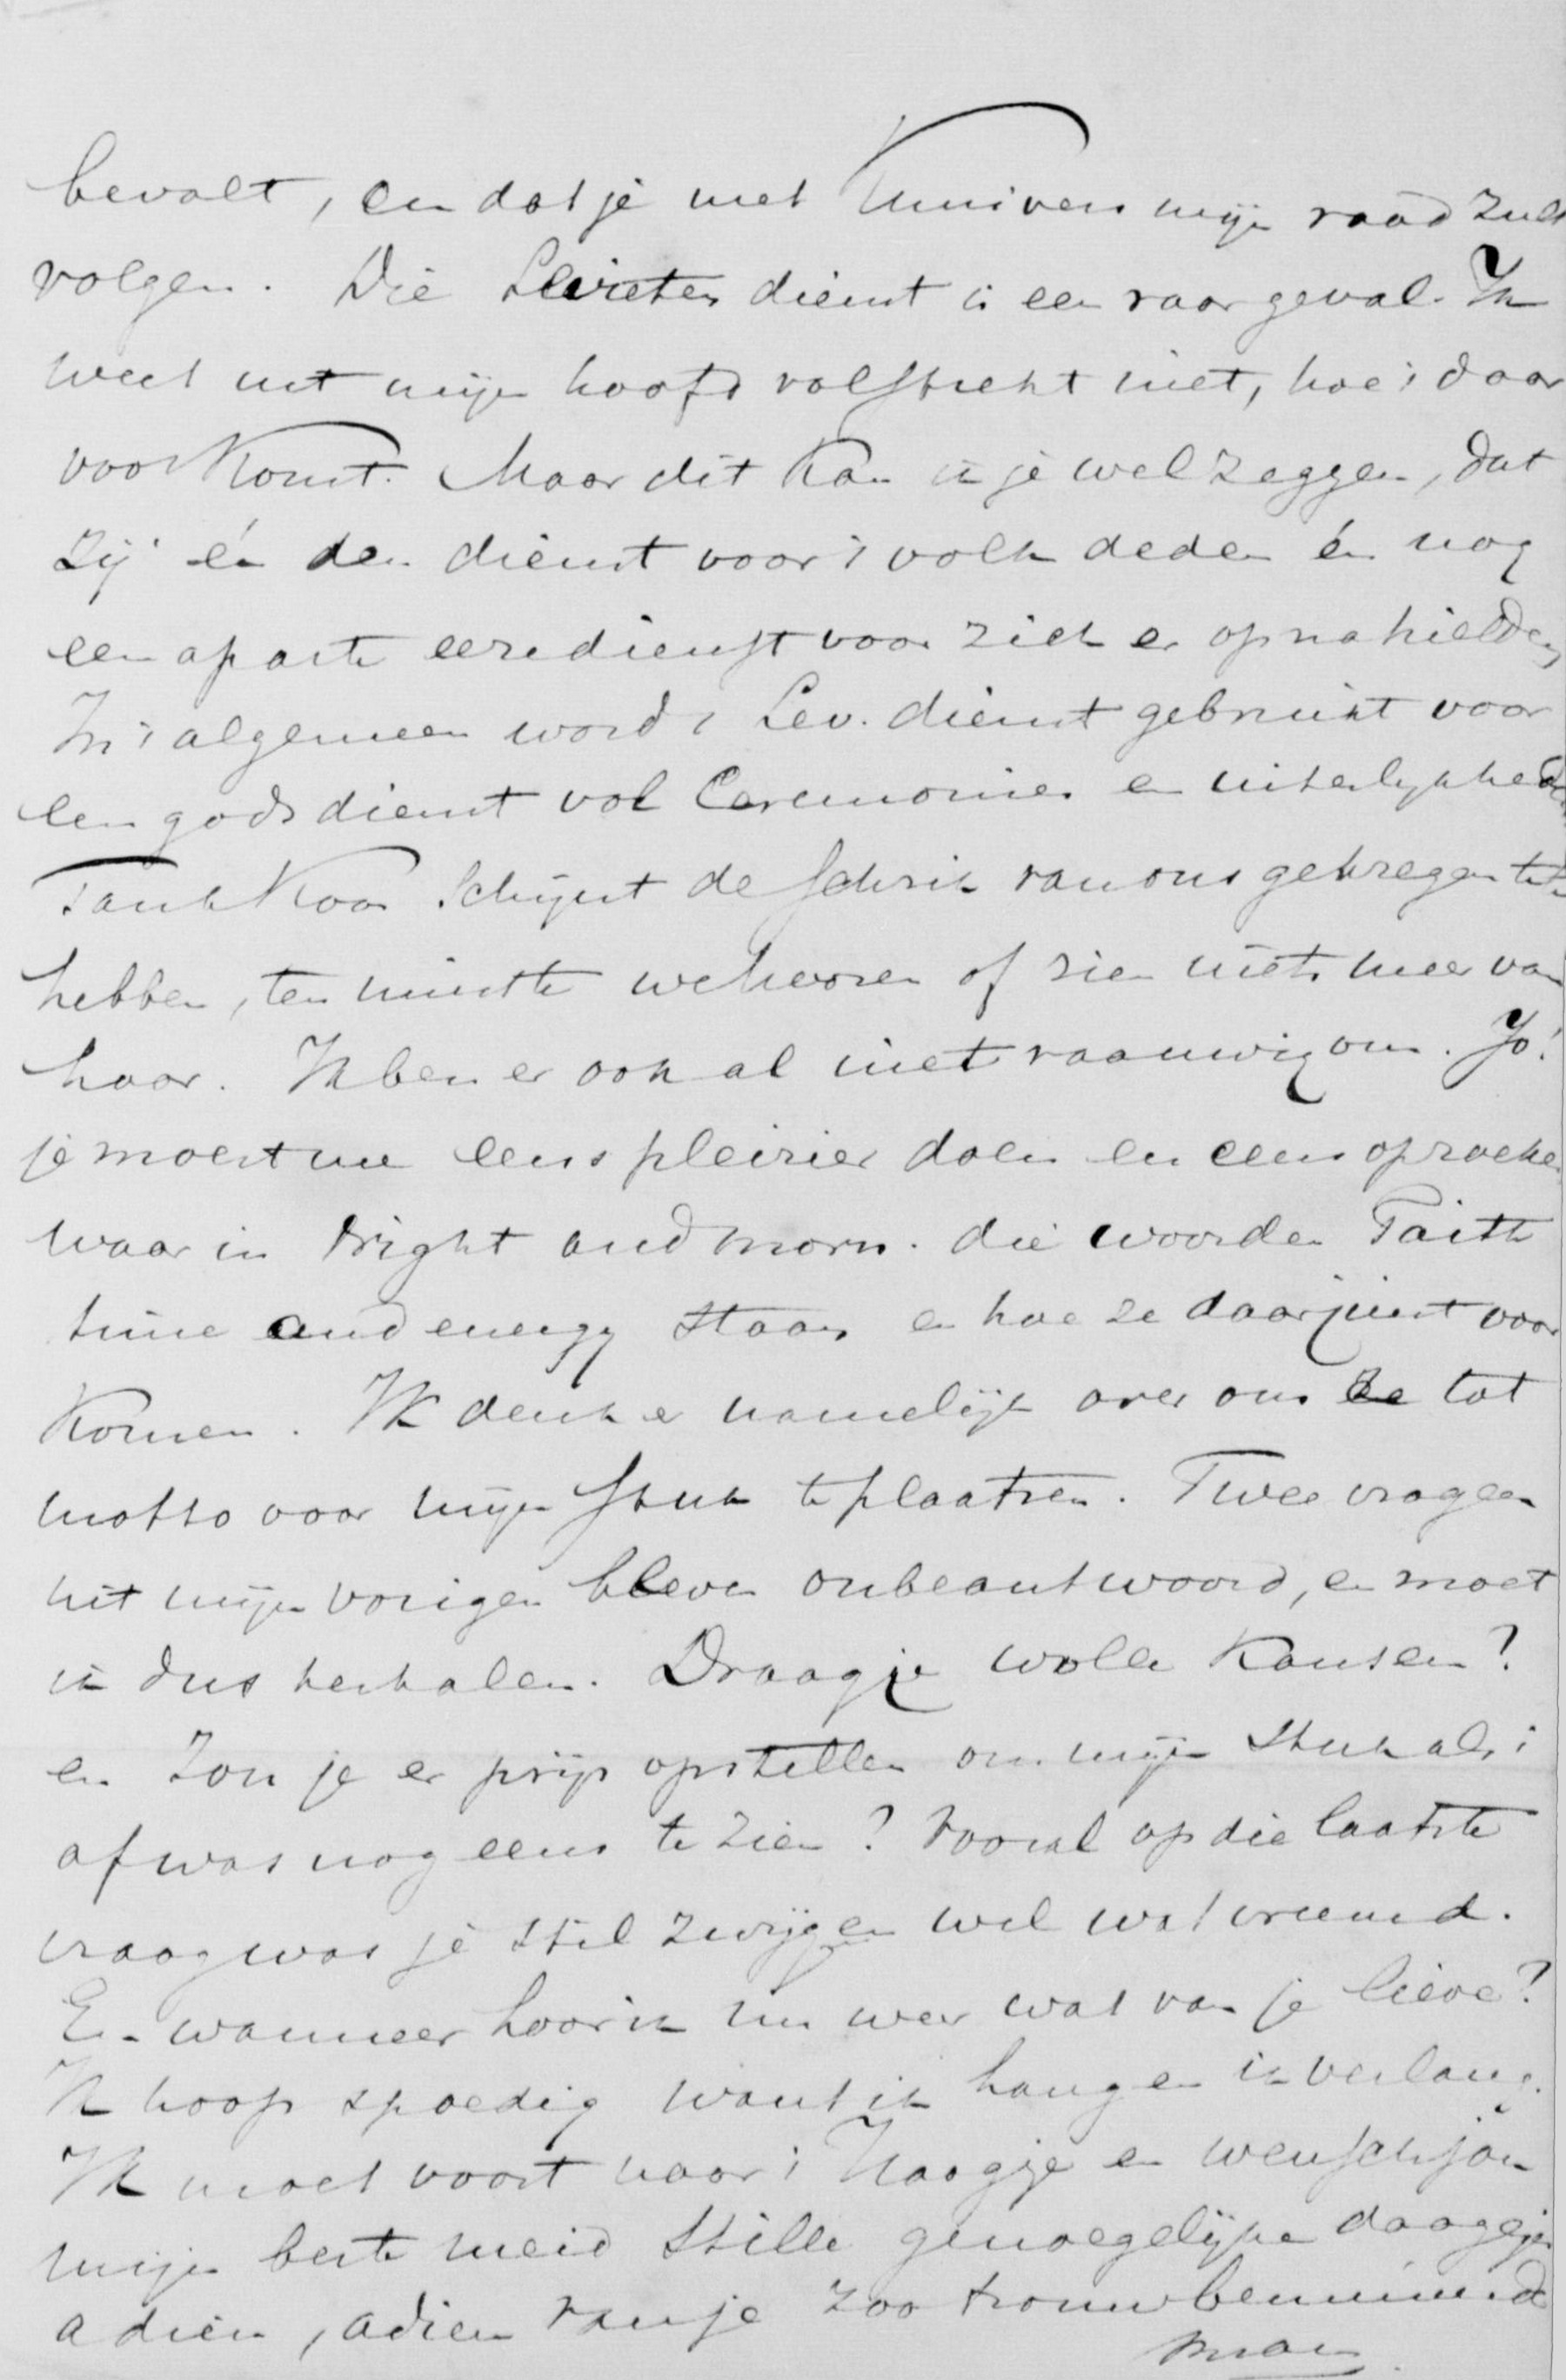 bevalt, en dat je met Kunivers mijn raad zult
volgen. Die Levieten dienst is een raar geval. Ik
weet uit mijn hoofd volstrekt niet, hoe 't daar
voor Komt. Maar dit Kan ik je wel zeggen, dat
zij én den dienst voor 't volk deden én nog
een aparte eeredienst voor zich er op na hielden
In 't algemeen word 't Lev. dienst gebruikt voor
een godsdienst vol Ceremonies en uiterlykheden
Tante Koos Schijnt de schrik van ons gekregen te
hebben, ten minste we hooren of zien niets meer van
haar. Ik ben er ook al niet raauwig om. Jo!
je moest me eens pleizier doen en eens opzoeken
waar in Night and morn. die woorden Faith
time and energy staan en hoe ze daar juist voor
Komen. Ik denk er namelijk over om ze tot
motto voor mijn stuk te plaatsen. Twee vragen
uit mijn vorigen bleven onbeantwoord, en moet
ik dus herhalen. Draag je wolle Kousen?
en Zou je er prijs opstellen om mijn stuk als 't
af was nog eens te zien? Vooral op die laatste
vraag was je stil zwijgen wel wat vreemd.
En wanneer hoor ik nu weer wat van je lieve?
Ik hoop spoedig want ik hang en ik verlang.
Ik moet voort naar 't Haagje en wensch jou
mijn beste meid stille genoegelijke daagjes
adieu, adieu van je zoo trouw beminnend
man